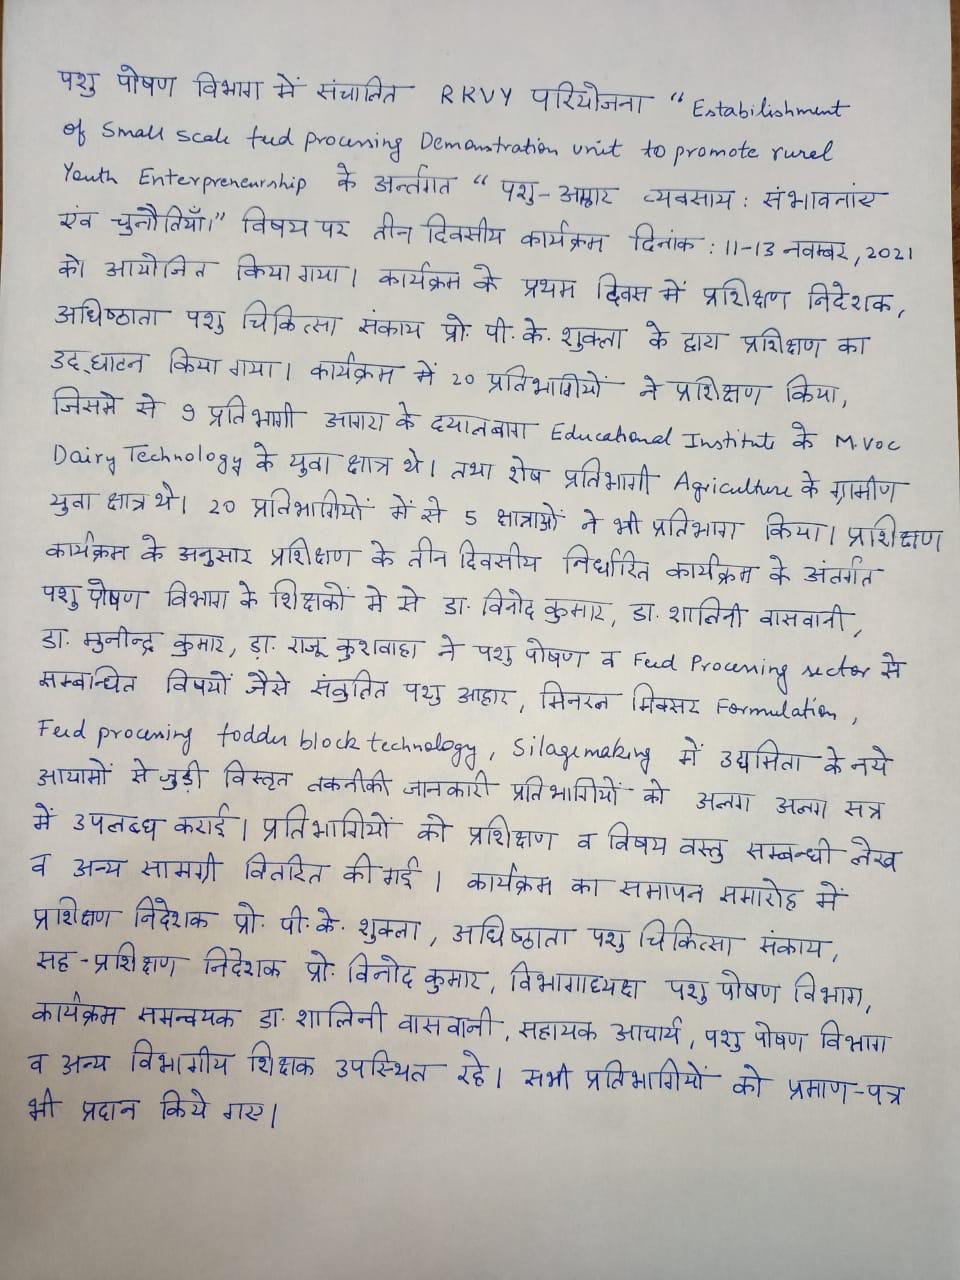 पशु पोषण विभाग में संचालित RKVY परियोजना "Estabilishment
of Small scale feed processing Demonstration unit to promote rurel
Youth Enterpreneurship के अर्न्तगत "पशु-आहार व्यवसाय: संभावनाएं
एंव चुनौतियाँ।" विषय पर तीन दिवसीय कार्यक्रम दिनांक: 11-13 नवम्बर, 2021
को आयोजित किया गया। कार्यक्रम के प्रथम दिवस में प्रशिक्षण निदेशक,
अधिष्ठाता पशु चिकित्सा संकाय प्रो. पी. के. शुक्ला के द्वारा प्रशिक्षण का
उद्घाटन किया गया। कार्यक्रम में 20 प्रतिभागियों ने प्रशिक्षण किया,
जिसमे से 9 प्रतिभागी आगरा के दयालबाग Educational Institute के M.Voc
Dairy Technology के युवा क्षात्र थे। तथा शेष प्रतिभागी Agriculture के ग्रामीण
युवा क्षात्र थे। 20 प्रतिभागियों में से 5 क्षात्राओं ने भी प्रतिभाग किया। प्रशिक्षण
कार्यक्रम के अनुसार प्रशिक्षण के तीन दिवसीय निर्धारित कार्यक्रम के अंतर्गत
पशु पोषण विभाग के शिक्षकों मे से डा. विनोद कुमार, डा. शालिनी वासवानी,
डा. मुनीन्द्र कुमार, डा. राजू कुशवाहा ने पशु पोषण व Feed Processing sector से
सम्बन्धित विषयों जैसे संतुलित पशु आहार, मिनरल मिक्सर Formulation,
Feed processing fodder block technology, Silagemaking में उद्यमिता के नये
आयामों से जुड़ी विस्तृत तकनीकी जानकारी प्रतिभागियों को अलग अलग सत्र
में उपलब्ध कराई। प्रतिभागियों को प्रशिक्षण व विषय वस्तु सम्बन्धी लेख
व अन्य सामग्री वितरित की गई। कार्यक्रम का समापन समारोह में
प्रशिक्षण निदेशक प्रो. पी. के. शुक्ला, अधिष्ठाता पशु चिकित्सा संकाय,
सह-प्रशिक्षण निदेशक प्रो. विनोद कुमार, विभागाध्यक्ष पशु पोषण विभाग,
कार्यक्रम समन्वयक डा. शालिनी वासवानी, सहायक आचार्य, पशु पोषण विभाग
व अन्य विभागीय शिक्षक उपस्थित रहे। सभी प्रतिभागियों को प्रमाण-पत्र
भी प्रदान किये गए।